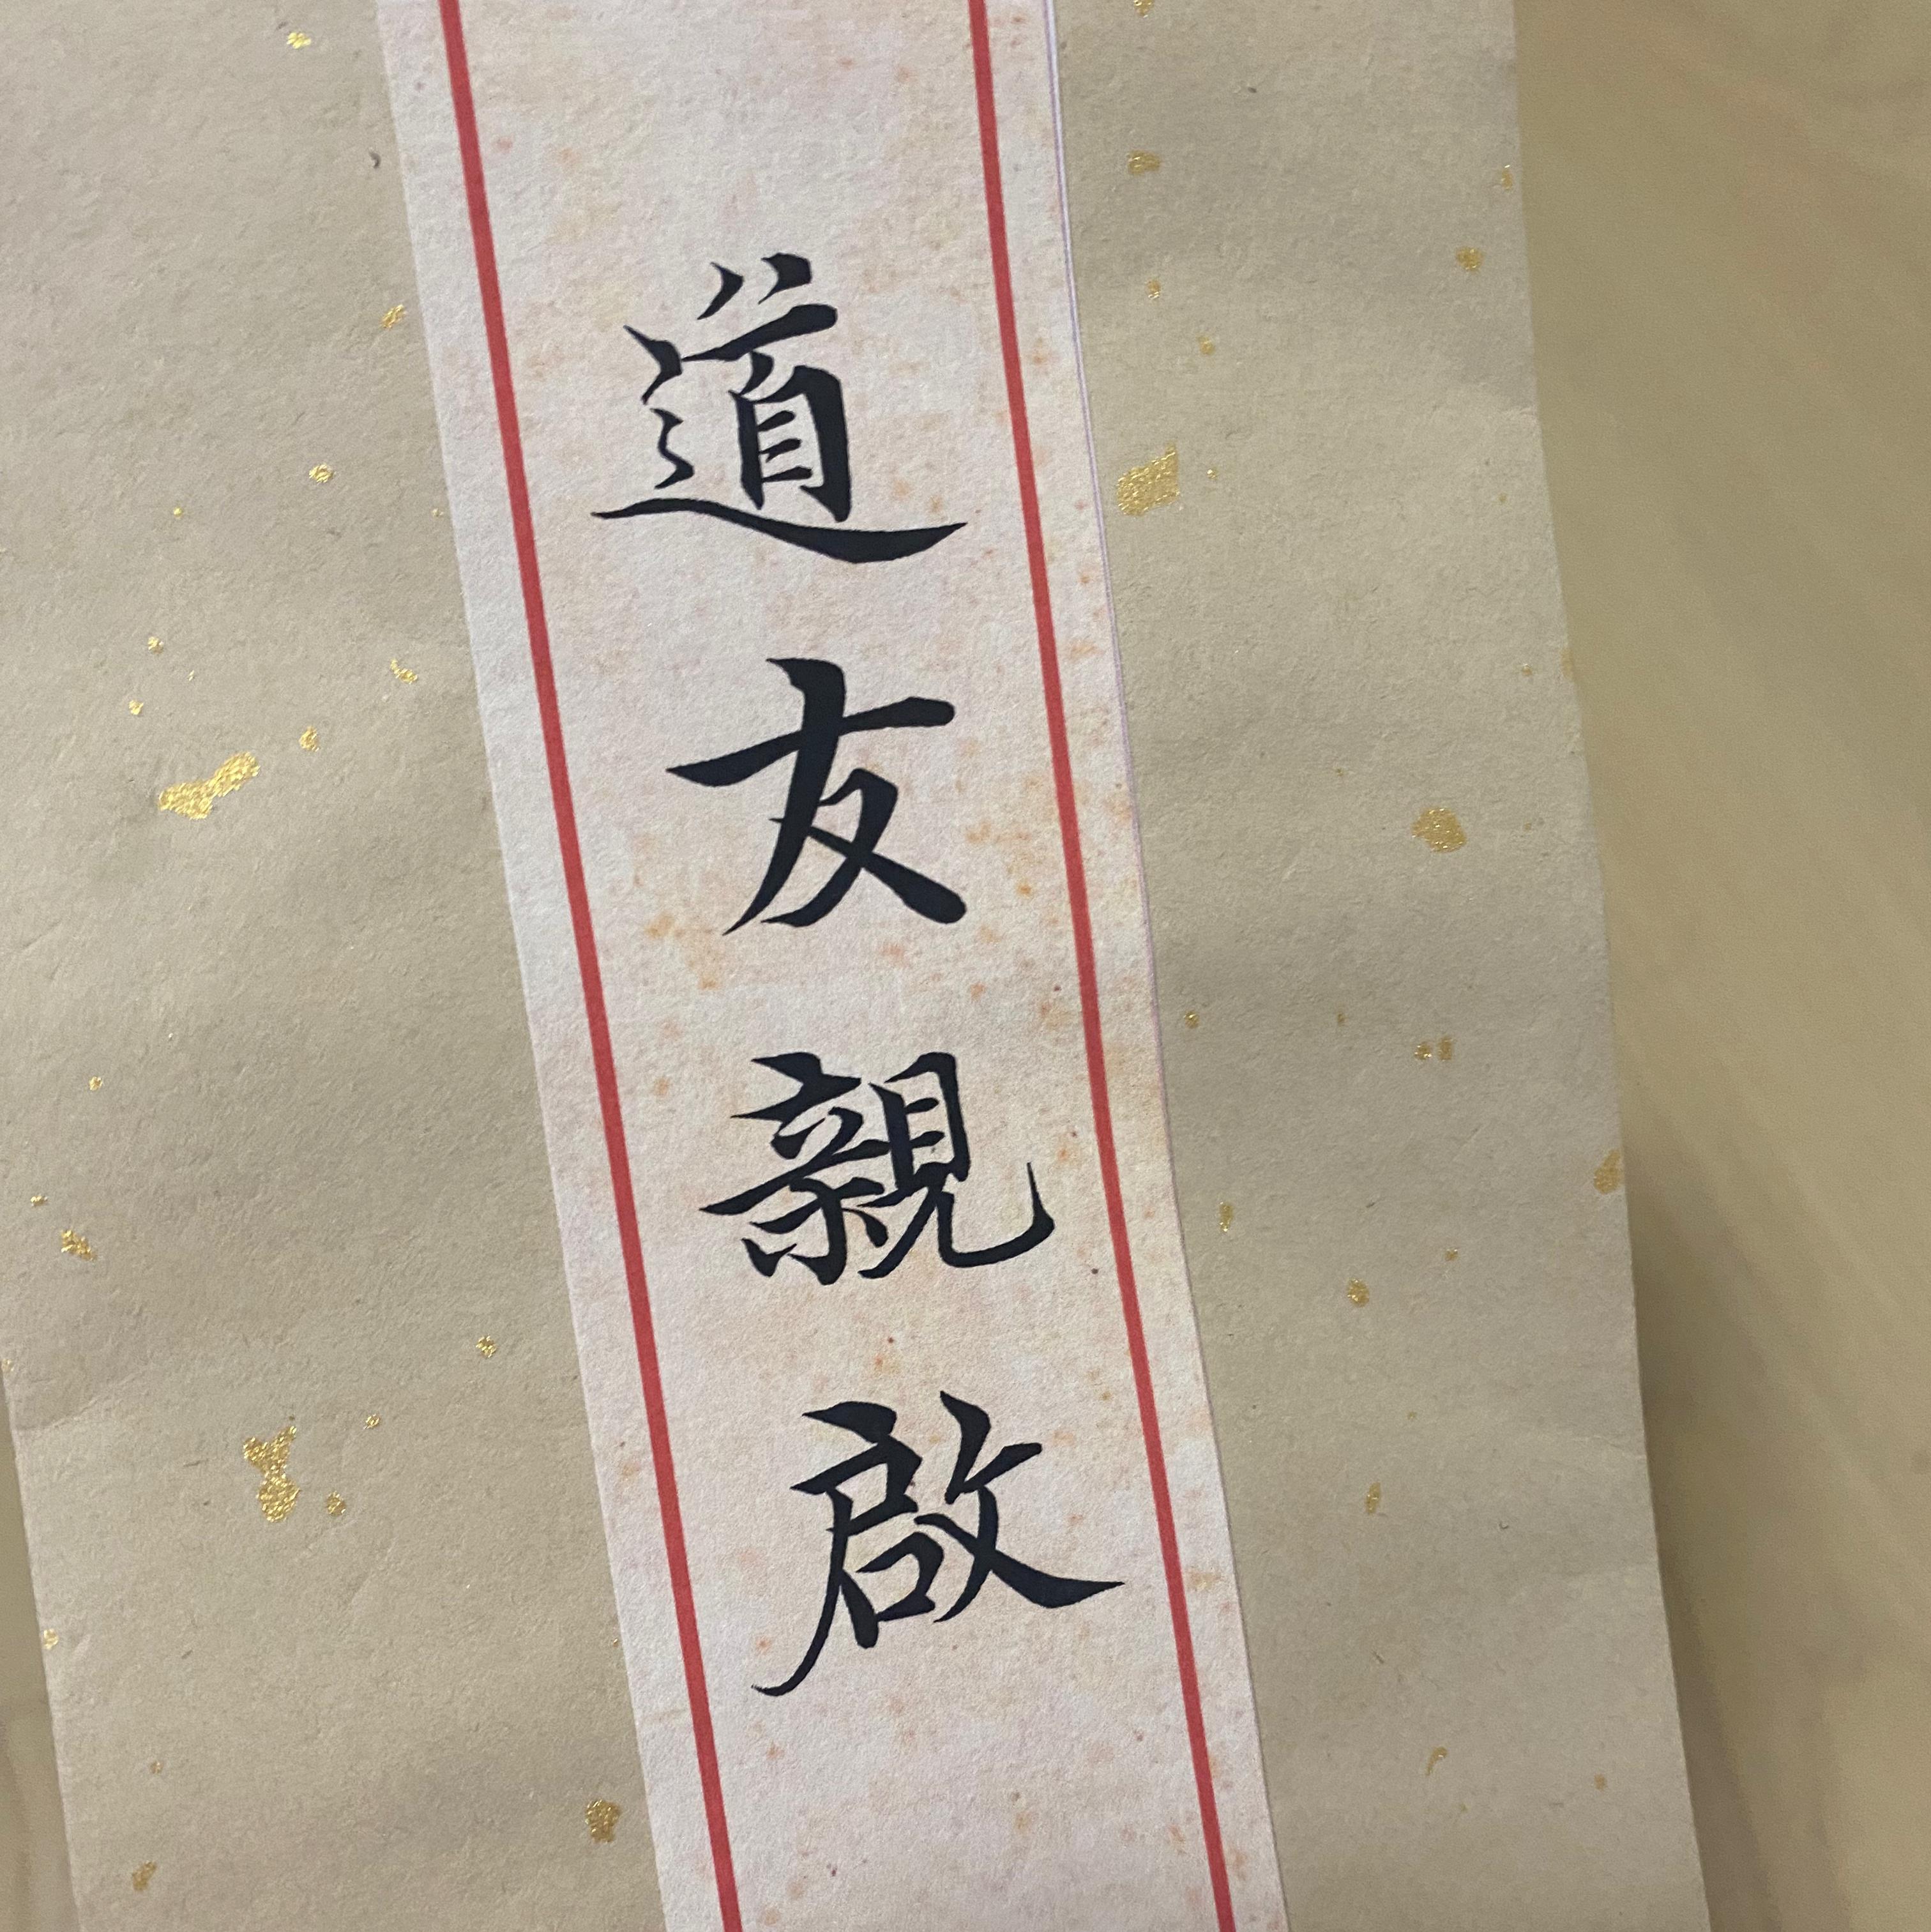 道友親啟